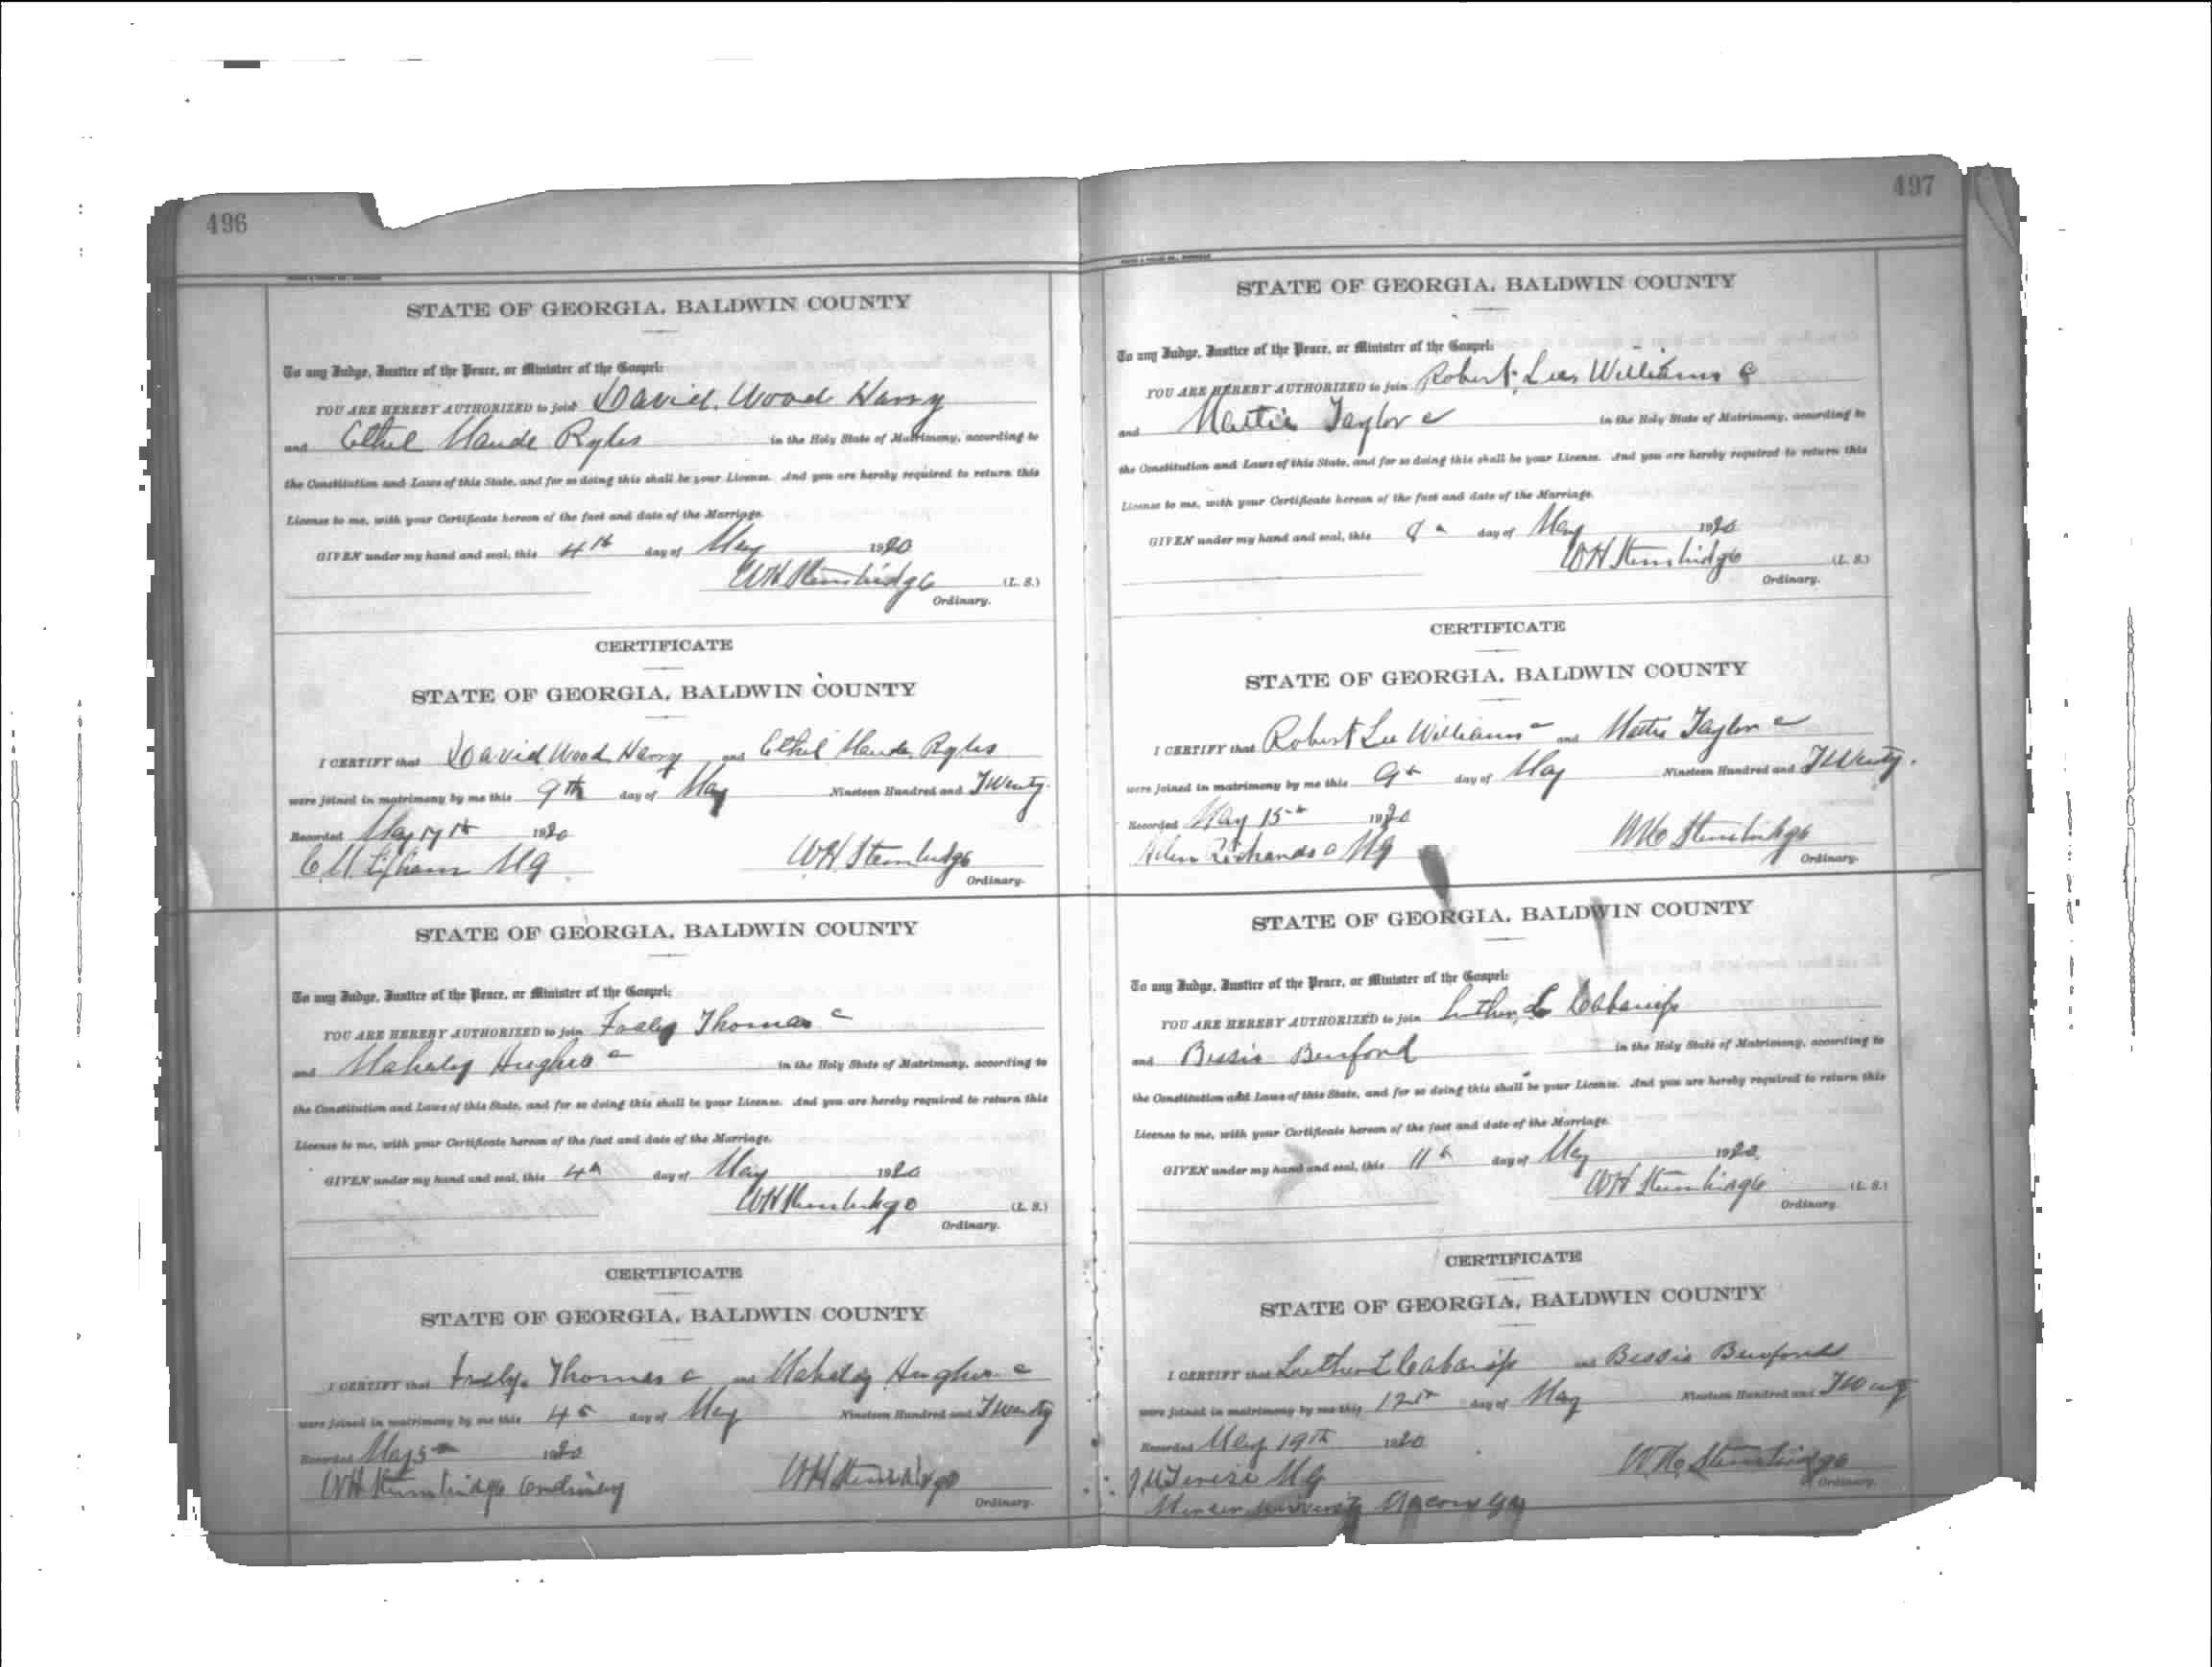 496
STATE OF GEORGIA, BALDWIN COUNTY
To any Judge, Justice of the Peace, or Minister of the Gospel:
YOU ARE HEREBY AUTHORIZED to join David Wood Harry
and Ethel Maude Ryles in the Holy State of Matrimony, according to
the Constitution and Laws of this State, and for so doing this shall be your License. And you are hereby required to return this
License to me, with your Certificate hereon of the fact and date of the Marriage.
GIVEN under my hand and seal, this 4th day of May 1920
WH Stembridge (L. S.)
Ordinary.
CERTIFICATE
STATE OF GEORGIA, BALDWIN COUNTY
I CERTIFY that David Wood Harry and Ethel Maude Ryles
were joined in matrimony by me this 9th day of May Nineteen Hundred and Twenty.
Recorded May 17th 1920
MG WH Stembridge
Ordinary.
STATE OF GEORGIA, BALDWIN COUNTY
To any Judge, Justice of the Peace, or Minister of the Gospel:
YOU ARE HEREBY AUTHORIZED to join Thomas c
and Mahaley Hughes c in the Holy State of Matrimony, according to
the Constitution and Laws of this State, and for so doing this shall be your License. And you are hereby required to return this
License to me, with your Certificate hereon of the fact and date of the Marriage.
GIVEN under my hand and seal, this 4th day of May 1920
WH Stembridge (L. S.)
Ordinary.
CERTIFICATE
STATE OF GEORGIA, BALDWIN COUNTY
I CERTIFY that Thomas c and Mahaley Hughes c
were joined in matrimony by me this 4th day of May Nineteen Hundred and Twenty
Recorded May 5th 1920
WH Stembridge Ordinary WH Stembridge
Ordinary.
497
STATE OF GEORGIA, BALDWIN COUNTY
To any Judge, Justice of the Peace, or Minister of the Gospel:
YOU ARE HEREBY AUTHORIZED to join Robert Lee Williams c
and Mattie Taylor c in the Holy State of Matrimony, according to
the Constitution and Laws of this State, and for so doing this shall be your License. And you are hereby required to return this
License to me, with your Certificate hereon of the fact and date of the Marriage.
GIVEN under my hand and seal, this day of May 1920
WH Stembridge (L. S.)
Ordinary.
CERTIFICATE
STATE OF GEORGIA, BALDWIN COUNTY
I CERTIFY that Robert Lee Williams c and Mattie Taylor c
were joined in matrimony by me this 9th day of May Nineteen Hundred and Twenty.
Recorded May 15th 1920
MG WH Stembridge
Ordinary.
STATE OF GEORGIA, BALDWIN COUNTY
To any Judge, Justice of the Peace, or Minister of the Gospel:
YOU ARE HEREBY AUTHORIZED to join Luther L Cabaniss
and Bessie Benford in the Holy State of Matrimony, according to
the Constitution and Laws of this State, and for so doing this shall be your License. And you are hereby required to return this
License to me, with your Certificate hereon of the fact and date of the Marriage.
GIVEN under my hand and seal, this 11th day of May 1920
WH Stembridge (L. S.)
Ordinary.
CERTIFICATE
STATE OF GEORGIA, BALDWIN COUNTY
I CERTIFY that Luther L Cabaniss and Bessie
were joined in matrimony by me this 12th day of May Nineteen Hundred and Twenty
Recorded May 19th 1920
MG WH Stembridge
Ordinary.
Mercer University Macon Ga